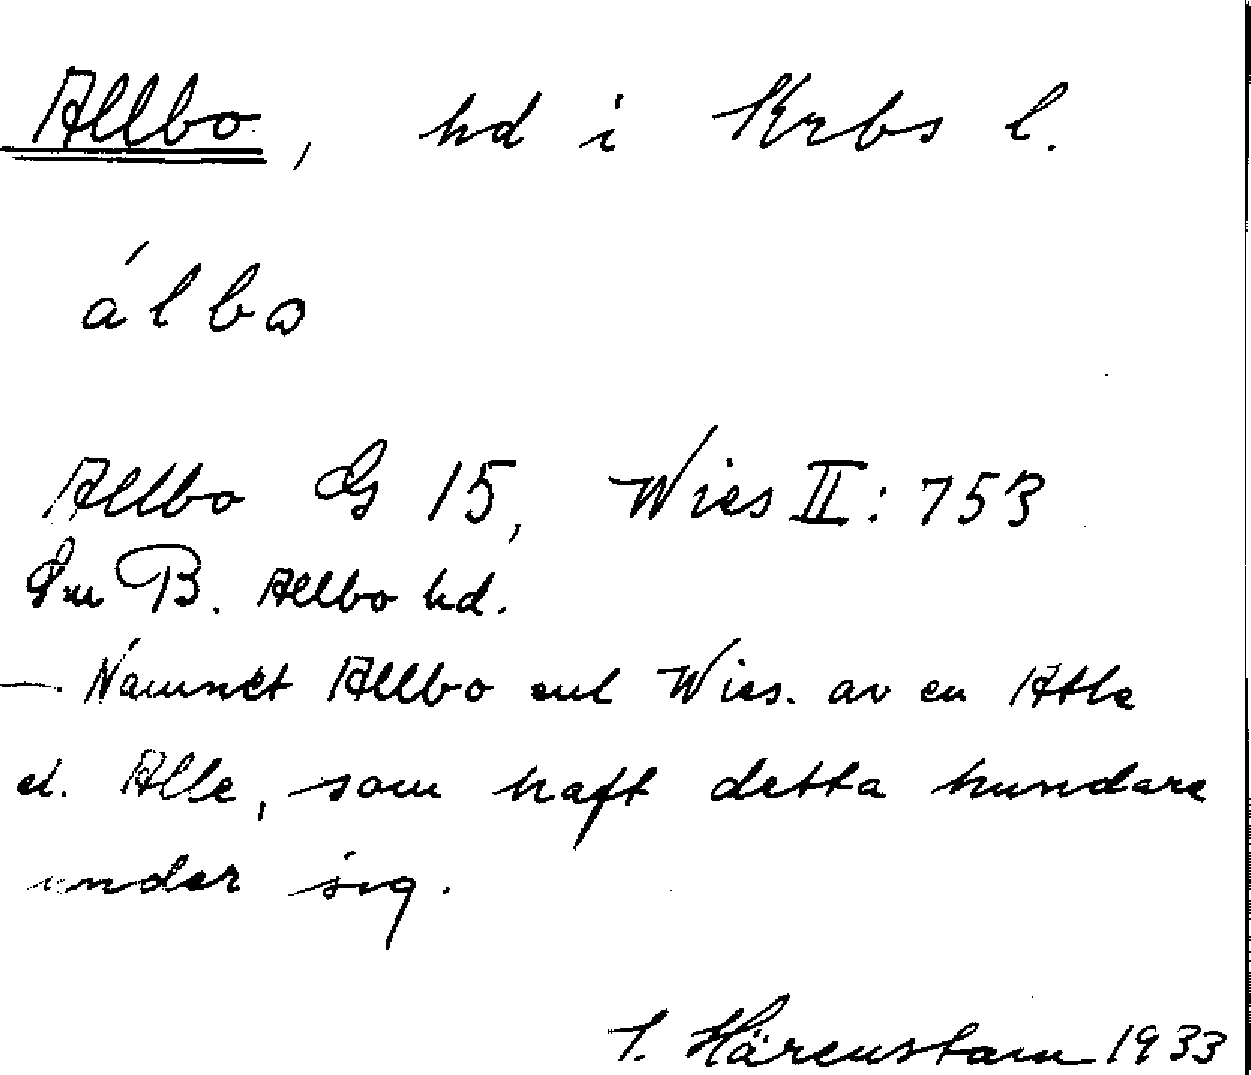 Allbo, hd i Krbs l.
álbo
Allbo G 15, Wies II: 753
Sm B. Allbo hd.
— Namnet Allbo enl Wies. av en Atle
el. Alle, som haft detta hundare
under sig.
T. Härenstam 1933